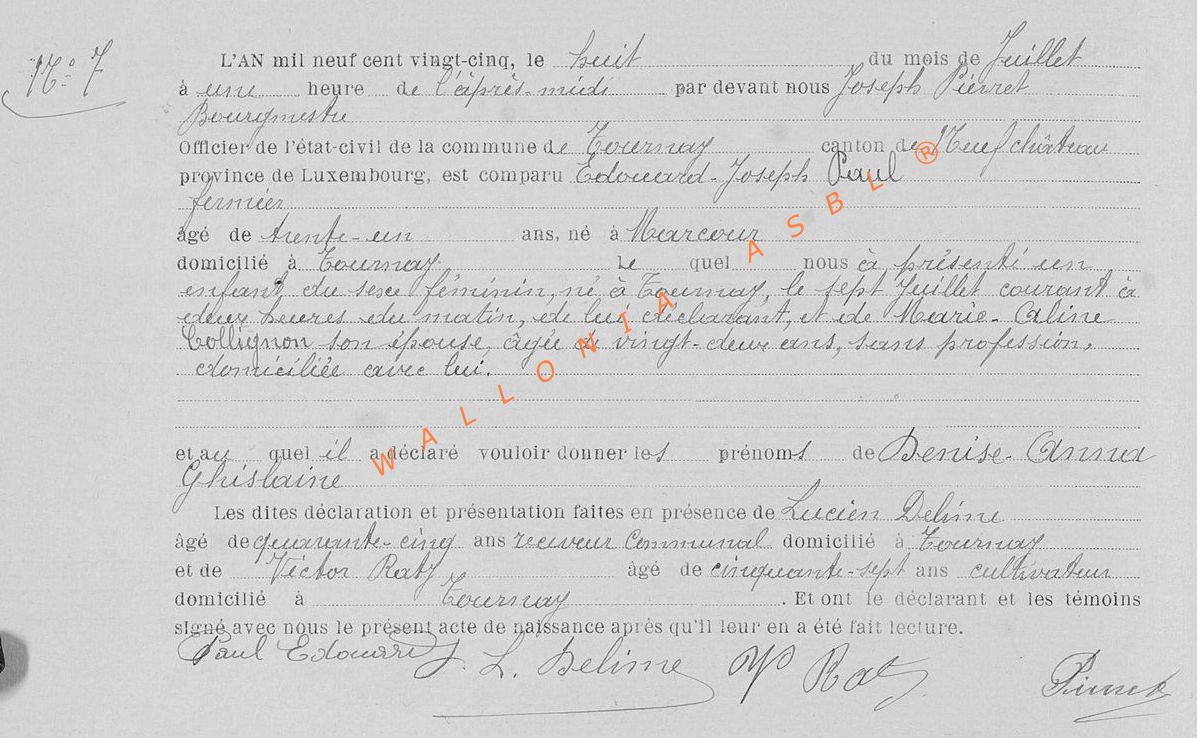 N° 7
L'AN mil neuf cent vingt-cinq, le huit du mois de Juillet
à une heure de l'après-midi par devant nous Joseph Pierret
Bourgmestre
Officier de l'état-civil de la commune de Tournay canton de Neufchâteau
province de Luxembourg, est comparu Edouard-Joseph Paul
fermier
âgé de trente-un ans, né à Marcour
domicilié à Tournay Le quel nous à présenté un
enfant du sexe féminin, né à Tournay, le sept Juillet courant à
deux heures du matin, de lui déclarant, et de Marie-Aline
Collignon son épouse, âgée de vingt-deux ans, sans profession,
domiciliée avec lui.
et au quel il a déclaré vouloir donner les prénoms de Denise-Anna
Ghislaine
Les dites déclaration et présentation faites en présence de Lucien Delime
âgé de quarante-cinq ans receveur Communal domicilié à Tournay
et de Victor Raty âgé de cinquante-sept ans cultivateur
domicilié à Tournay. Et ont le déclarant et les témoins
signé avec nous le présent acte de naissance après qu'il leur en a été fait lecture.
Paul Edouard J. L. Delime V Raty Pierret
WALLONIA ASBL ®